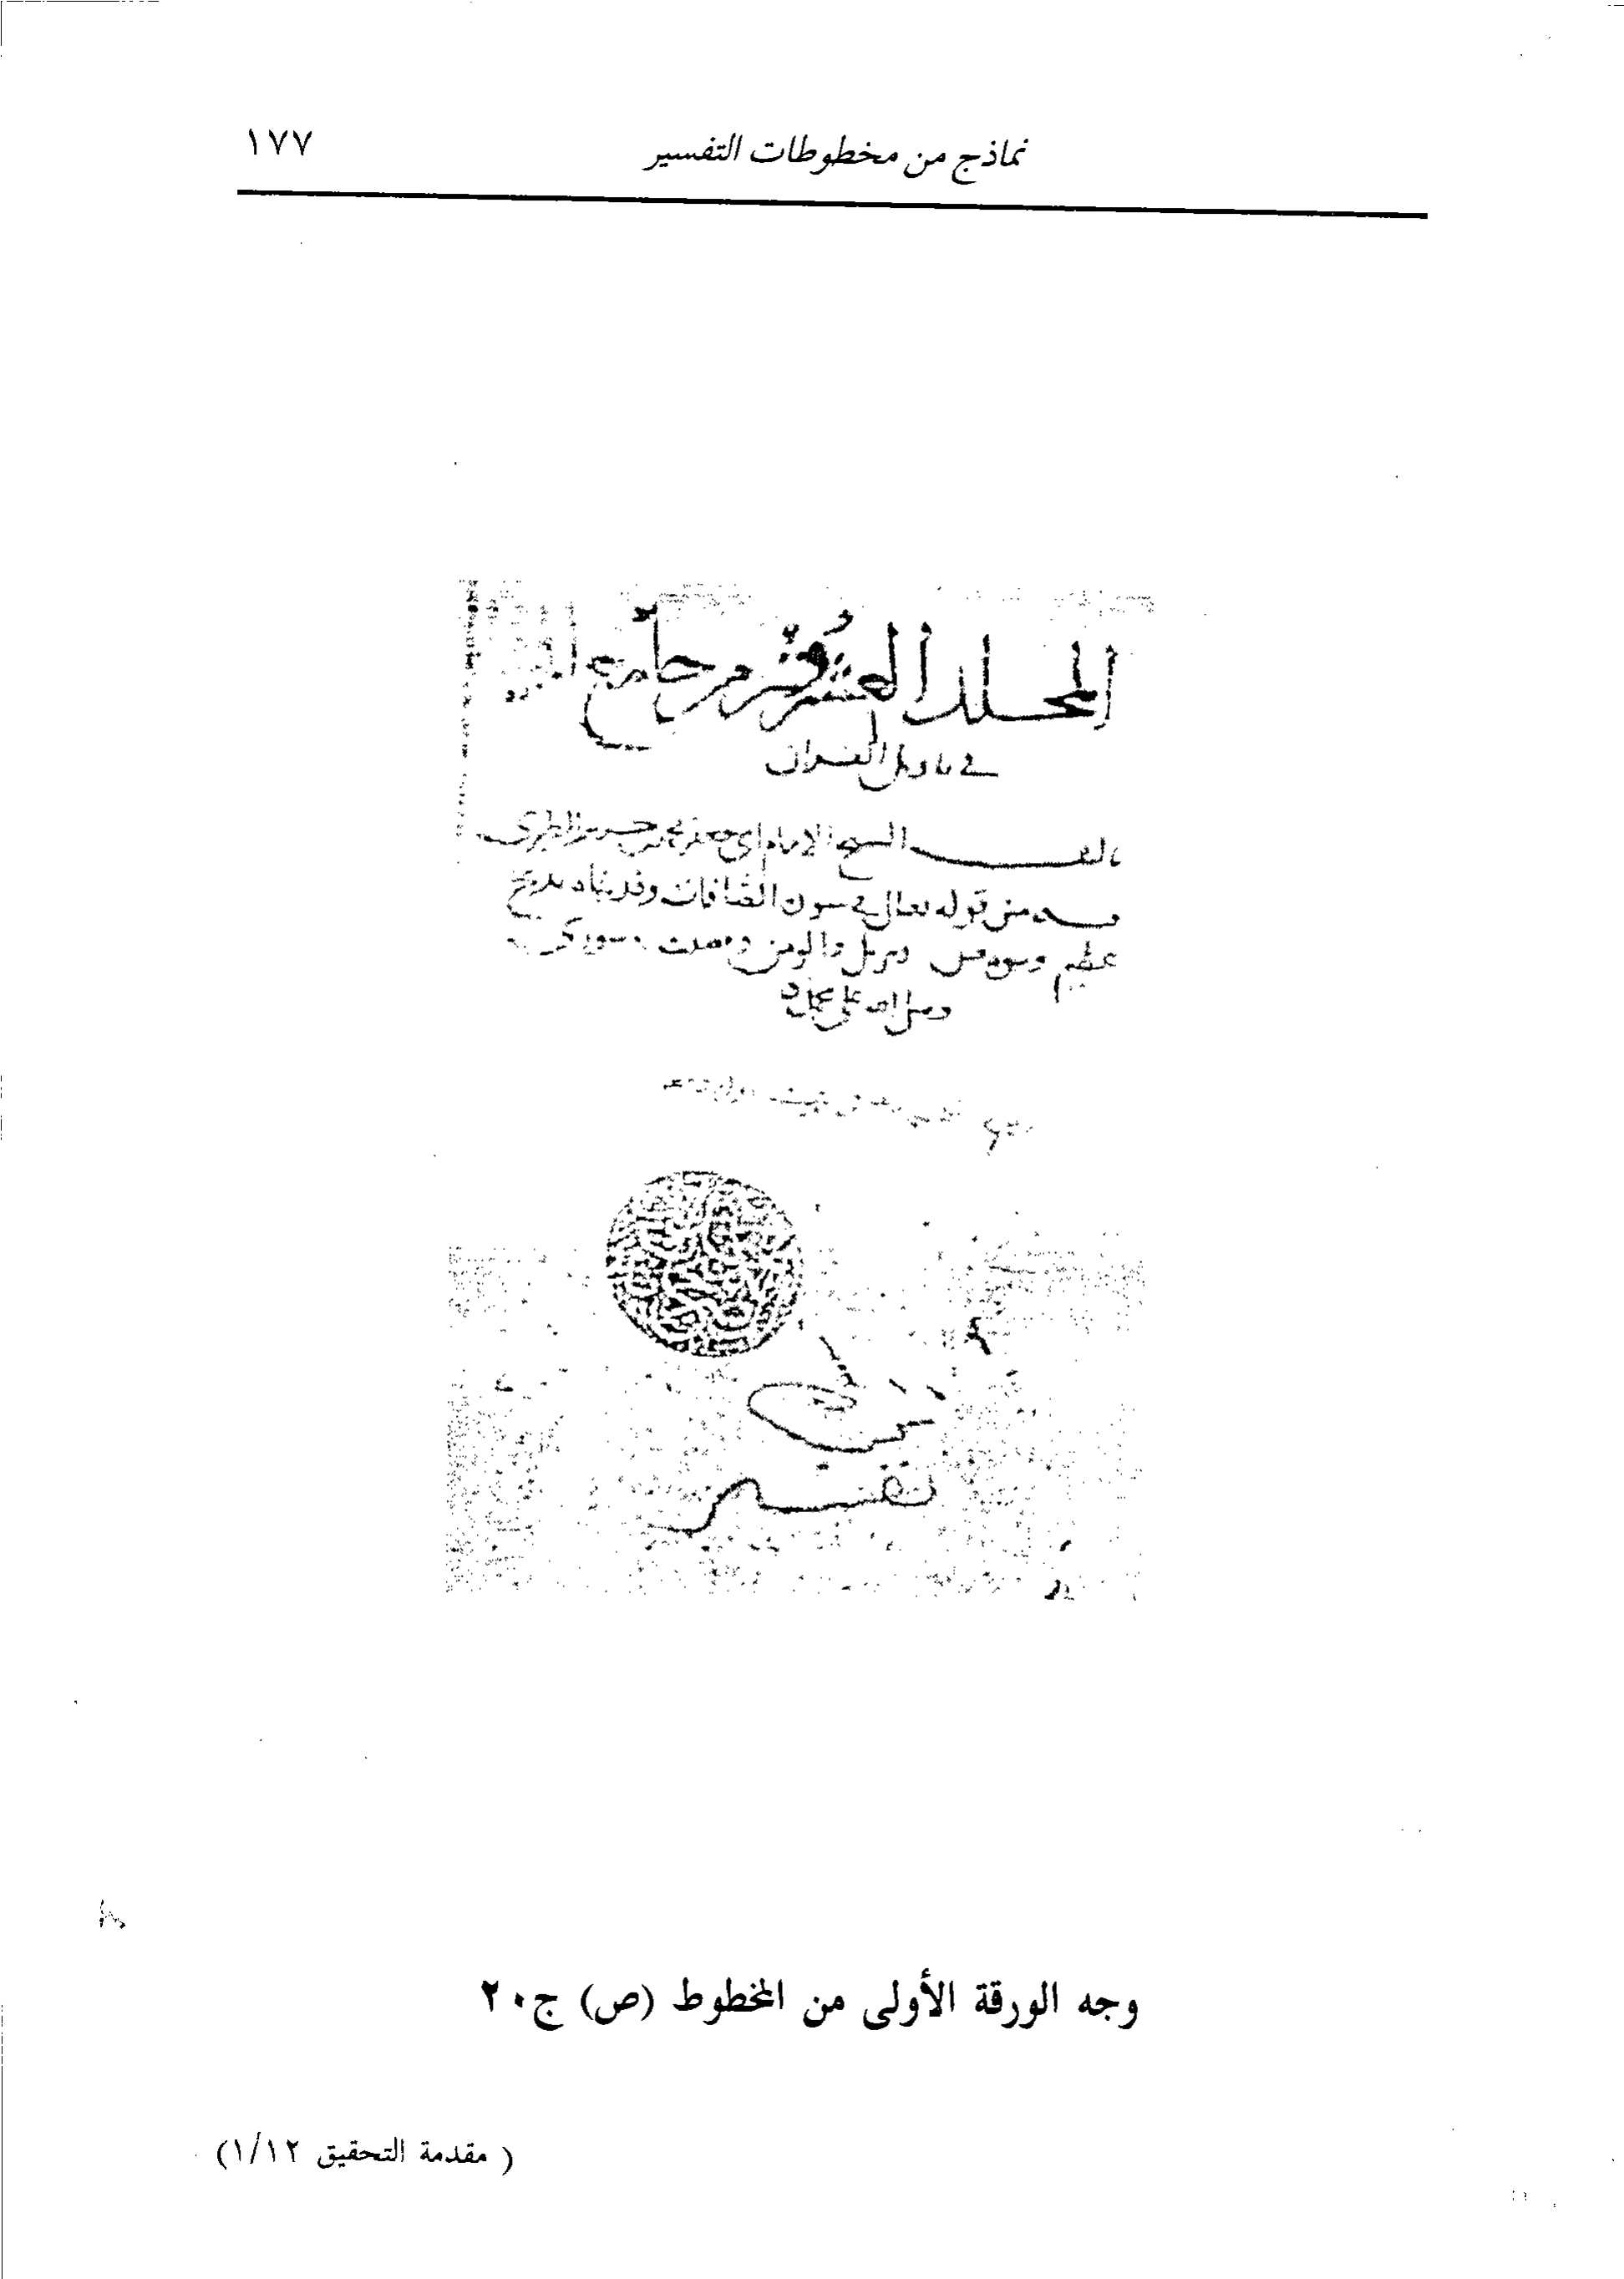 نماذج من مخطوطات التفسير ١٧٧
المجلد العشرون من جامع
في تاويل القران
تاليف الشيخ الامام ابي جعفر محمد بن جرير الطبري
فيه من قوله تعالى في سورة الصافات وفديناه بذبح
عظيم وسورة ص وتنزيل والمومن وفصلت وسورة
وصلى الله على محمد
تفسير
وجه الورقة الأولى من المخطوط (ص) ج٢٠
( مقدمة التحقيق ١/١٢)